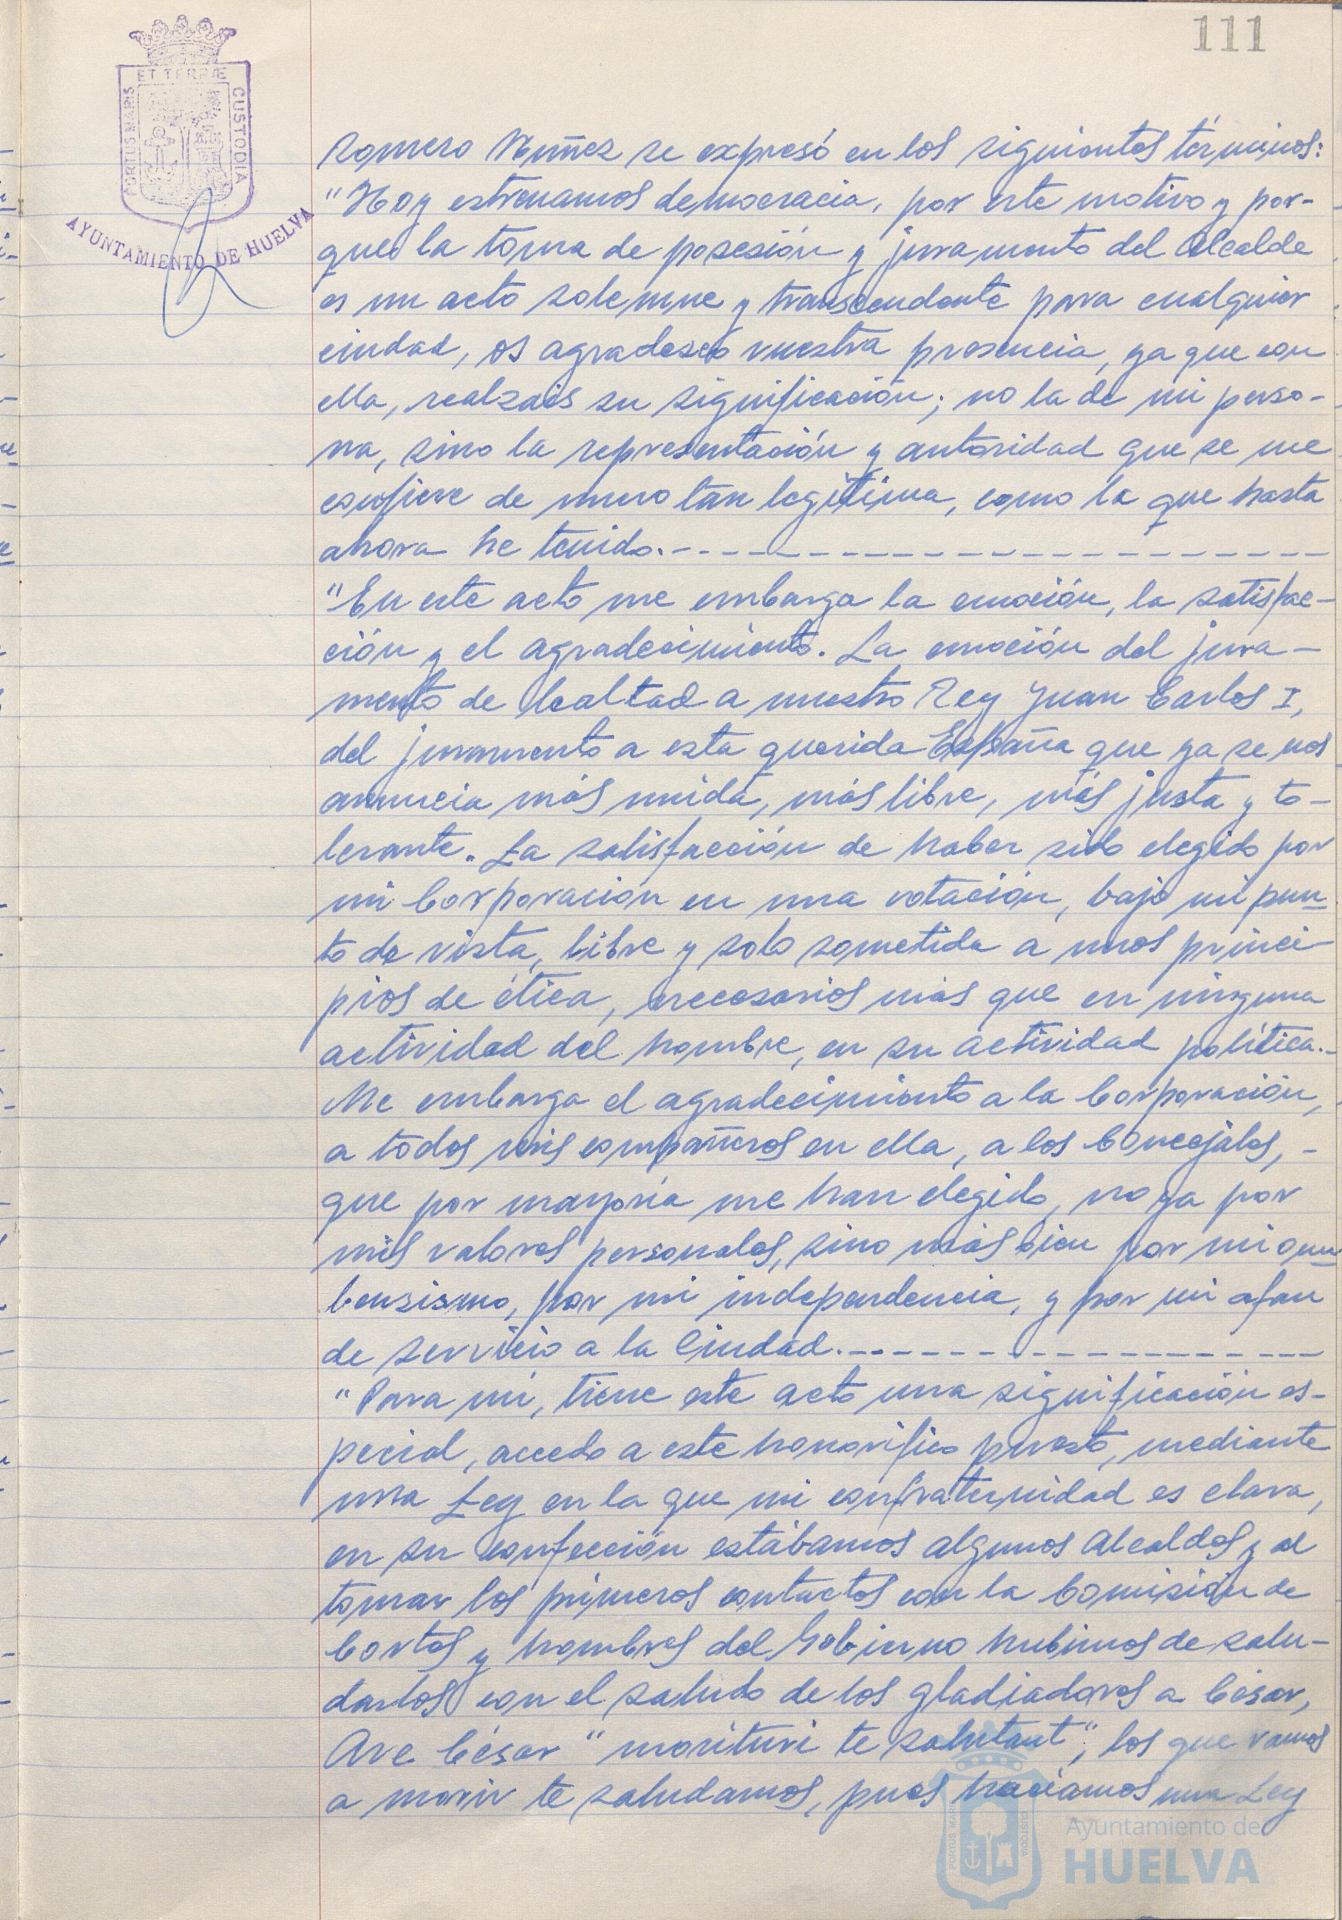 111
ET TERRÆ
PORTUS MARIS
CUSTODIA
AYUNTAMIENTO DE HUELVA
Romero Núñez se expresó en los siguientes términos:
"Hoy estrenamos democracia, por este motivo y por-
que la toma de posesión y juramento del Alcalde
es un acto solemne y transcendente para cualquier
ciudad, os agradesco vuestra presencia, ya que con
ella, realzais su significación; no la de mi perso-
na, sino la representación y autoridad que se me
confiere de nuevo tan legítima, como la que hasta
ahora he tenido.-----------------
"En este acto me embarga la emoción, la satisfac-
ción y el agradecimiento. La emoción del jura-
mento de lealtad a nuestro Rey Juan Carlos I,
del juramento a esta querida España que ya se nos
anuncia más unida, más libre, más justa y to-
lerante. La satisfacción de haber sido elegido por
mi Corporación en una votación, bajo mi pun-
to de vista, libre y solo sometida a unos princi-
pios de ética, necesarios más que en ninguna
actividad del hombre, en su actividad política.-
Me embarga el agradecimiento a la Corporación,
a todos mis compañeros en ella, a los Concejales,-
que por mayoría me han elegido, no ya por
mis valores personales, sino más bien por mi onu-
bensismo, por mi independencia, y por mi afan
de servicio a la Ciudad.-----------------
"Para mí, tiene este acto una significación es-
pecial, accedo a este honorífico puesto, mediante
una Ley en la que mi confraternidad es clara,
en su confección estábamos algunos Alcaldes y al
tomar los primeros contactos con la Comisión de
Cortes y hombres del Gobierno hubimos de salu-
darlos con el saludo de los gladiadores a César,
Ave César "morituri te salutant", los que vamos
a morir te saludamos, pues hacíamos una Ley
PORTUS MARIS
CUSTODIA
Ayuntamiento de
HUELVA